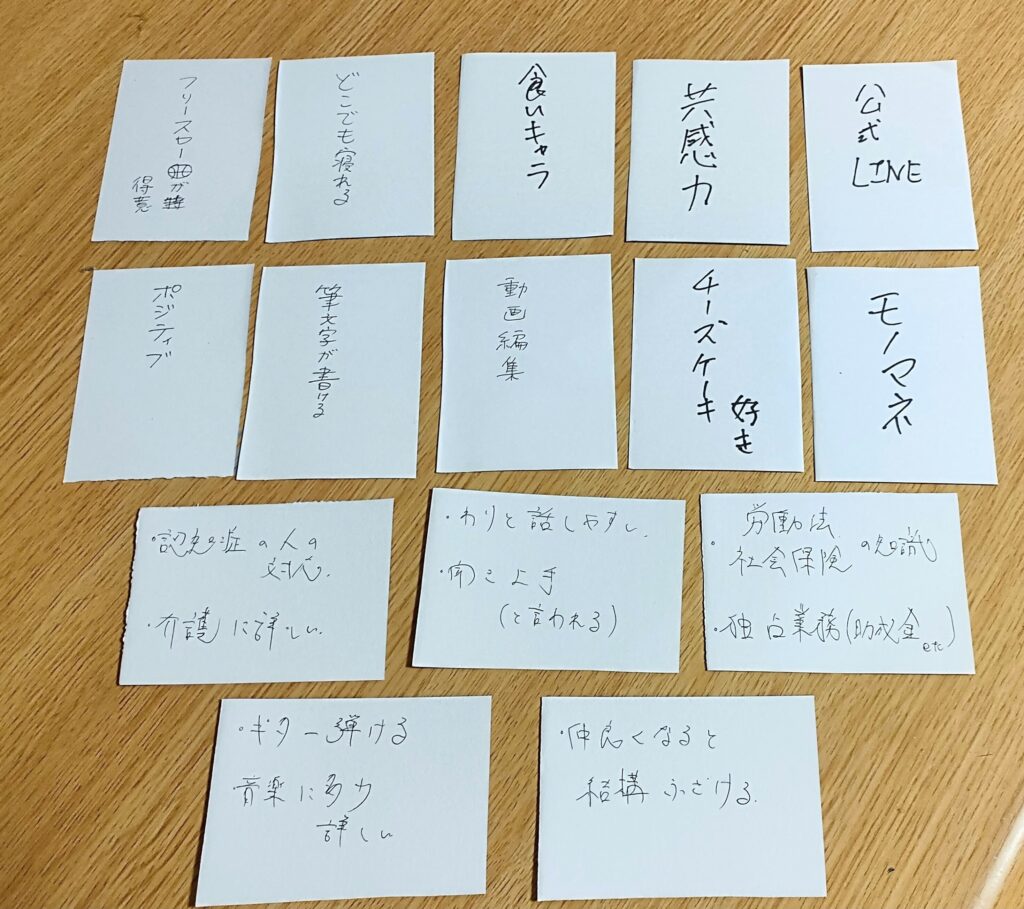 フリースローが
得意
どこでも寝れる
食いキャラ
共感力
公式
LINE
ポジティブ
筆文字が書ける
動画編集
チーズケーキ
好き
モノマネ
・認知症の人の
対応.
・介護に詳しい.
・わりと話しやすい.
・聞き上手
(と言われる)
・労働法
社会保険の知識
・独占業務(助成金etc)
・ギター弾ける
音楽に多少
詳しい
・仲良くなると
結構ふざける.